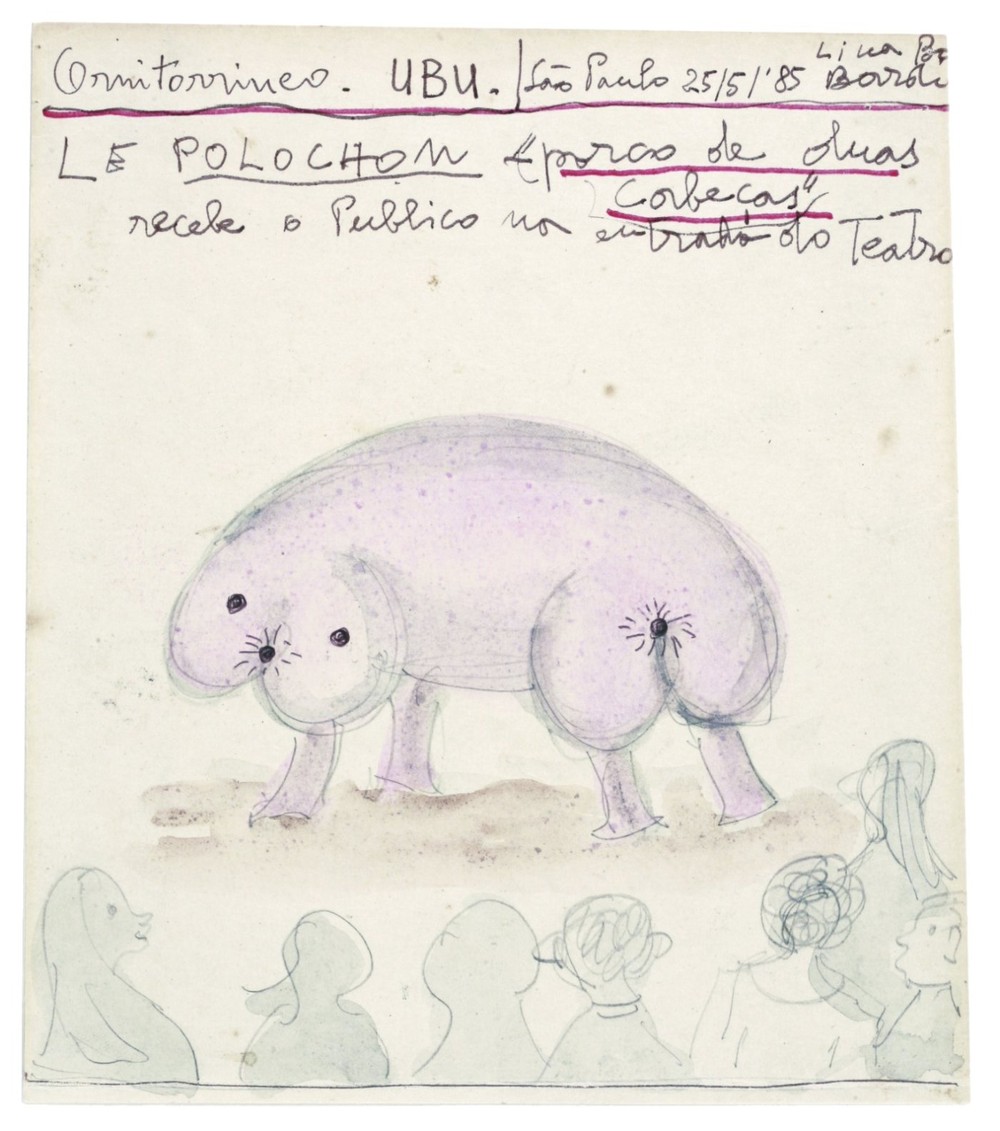 Ornitorrinco. UBU. | São Paulo 25/5/'85 Lina Bo
Bardi
LE POLOCHON "porco de duas
cabeças"
recebe o Publico na entrada do Teatro